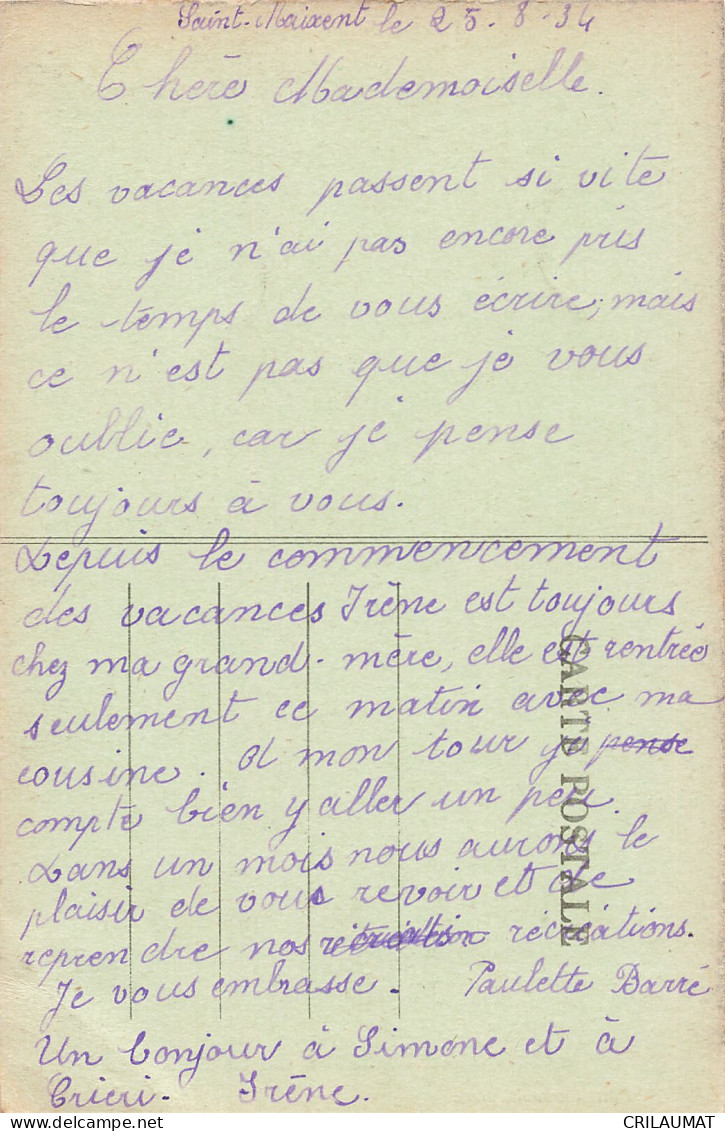 Saint-Maixent le 25-8-34
Chère Mademoiselle.
Les vacances passent si vite
que je n'ai pas encore pris
le temps de vous écrire, mais
ce n'est pas que je vous
oublie, car je pense
toujours à vous.
Depuis le commencement
des vacances Irène est toujours
chez ma grand-mère, elle est rentrée
seulement ce matin avec ma
cousine. A mon tour je pense
compte bien y aller un peu.
Dans un mois nous aurons le
plaisir de vous revoir et de
reprendre nos récréations.
Je vous embrasse. Paulette Barré
Un bonjour à Simone et à
Cricri. Irène.
CARTE POSTALE
CRILAUMAT